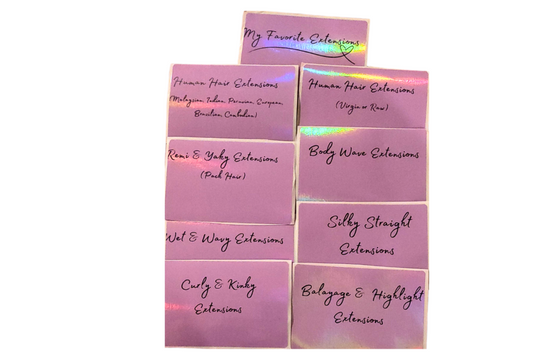 My Favorite Extensions
Human Hair Extensions
(Malaysian Indian Peruvian European
Brazilian Cambodian)
Human Hair Extensions
(Virgin or Raw)
Remi & Yaky Extensions
(Pack Hair)
Body Wave Extensions
Wet & Wavy Extensions
Silky Straight
Extensions
Curly & Kinky
Extensions
Balayage & Highlight
Extensions